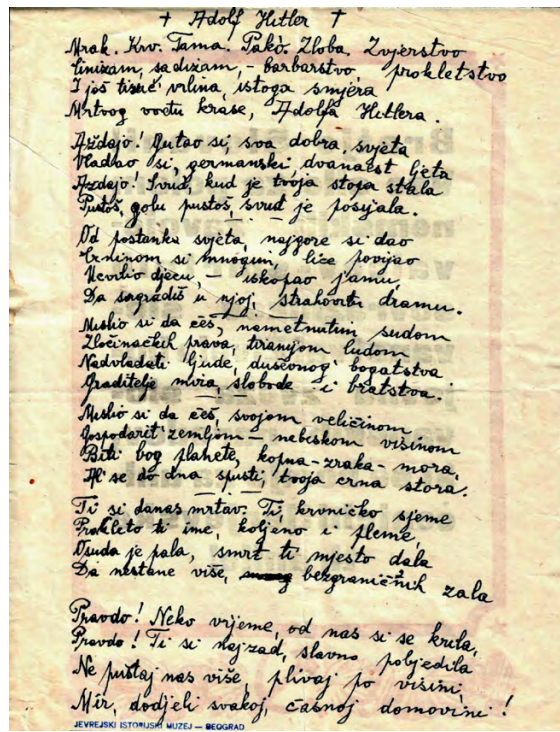 † Adolf Hitler †
Mrak. Krv. Tama. Pakò. Zloba. Zvjerstvo
Cinizam, sadizam, - barbarstvo, prokletstvo
I još tisuć vrlina, istoga smjera
Mrtvog vođu krase, Adolfa Hitlera.
Aždajo! Gutao si, sva dobra svjeta
Vladao si, germanski dvanaest ljeta
Aždajo! Svud, kud je tvoja stopa stala
Pustoš, golu pustoš, svud je posijala.
Od postanka svjeta, najgore si dao
Crninom si mnogim, lice povijao
Ucvilio djecu, - iskopao jamu,
Da sagradiš u njoj, strahovitu dramu.
Mislio si da ćeš, nametnutim sudom
Zločinačkih prava, tiranijom ludom
Nadvladati ljude, duševnog bogatstva
Graditelje mira, slobode i bratstva.
Mislio si da ćeš, svojom veličinom
Gospodarit zemljom - nebeskom visinom
Biti bog planete, kopna-zraka-mora,
Al' se do dna spusti, tvoja crna stora.
Ti si danas mrtav. Ti, krvničko sjeme
Prokleto ti ime, koljeno i pleme,
Osuda je pala, smrt ti mjesto dala
Da nestane više, bezgraničnih zala
Pravdo! Neko vrijeme, od nas si se krila,
Pravdo! Ti si najzad, slavno pobjedila
Ne puštaj nas više, plivaj po visini,
Mir, dodjeli svakoj, časnoj domovini!
JEVREJSKI ISTORIJSKI MUZEJ — BEOGRAD